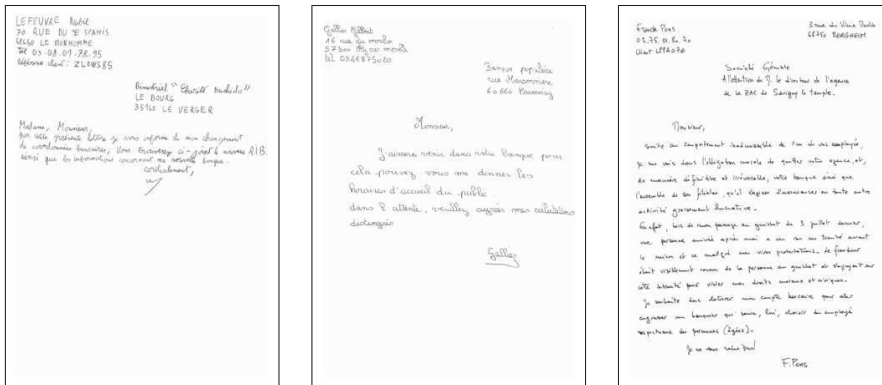 LEFEUVRE
70 RUE DU
68650 LE BONHOMME
Tél 03.08.01.78.95
Référence client : ZLOW585
Bimestriel "
LE BOURG
35160 LE VERGER
Madame, Monsieur,
par cette présente lettre je vous informe de mon changement
de coordonnées bancaires, Vous trouverez ci-joint le nouveau R.I.B.
ainsi que les informations concernant ma nouvelle banque.
cordialement,
Gallez
16 rue du moulin
Banque populaire
rue Maisonnière
Monsieur,
J'aimerai venir dans votre banque pour
cela pouvez-vous me donner les
horaires d'accueil du public
dans l'attente, veuillez agréer mes salutations
distinguées
Gallez
Franck Pons
3 rue du Vieux
68750 BERGHEIM
Société Générale
A l'attention de M. le directeur de l'agence
de la ZAC de Savigny le temple.
Monsieur,
Suite au comportement inadmissible de l'un de vos employés,
je me vois dans l'obligation morale de quitter votre agence, et,
de manière définitive et irrévocable, votre banque ainsi que
l'ensemble de ses filiales, qu'il s'agisse d'assurances ou toute autre
activité grassement lucrative.
En effet, lors de mon passage au guichet du 3 juillet dernier,
une personne arrivée après moi a vu son cas traité avant
le mien et ce malgré mes vives protestations. Le fraudeur
était visiblement connu de la personne au guichet et s'appuyait sur
cette intimité pour violer mes droits moraux et civiques.
Je souhaite donc clôturer mon compte bancaire pour aller
engraisser un banquier qui saura, lui, choisir des employés
respectueux des personnes (âgées).
Je ne vous salue pas!
F. Pons